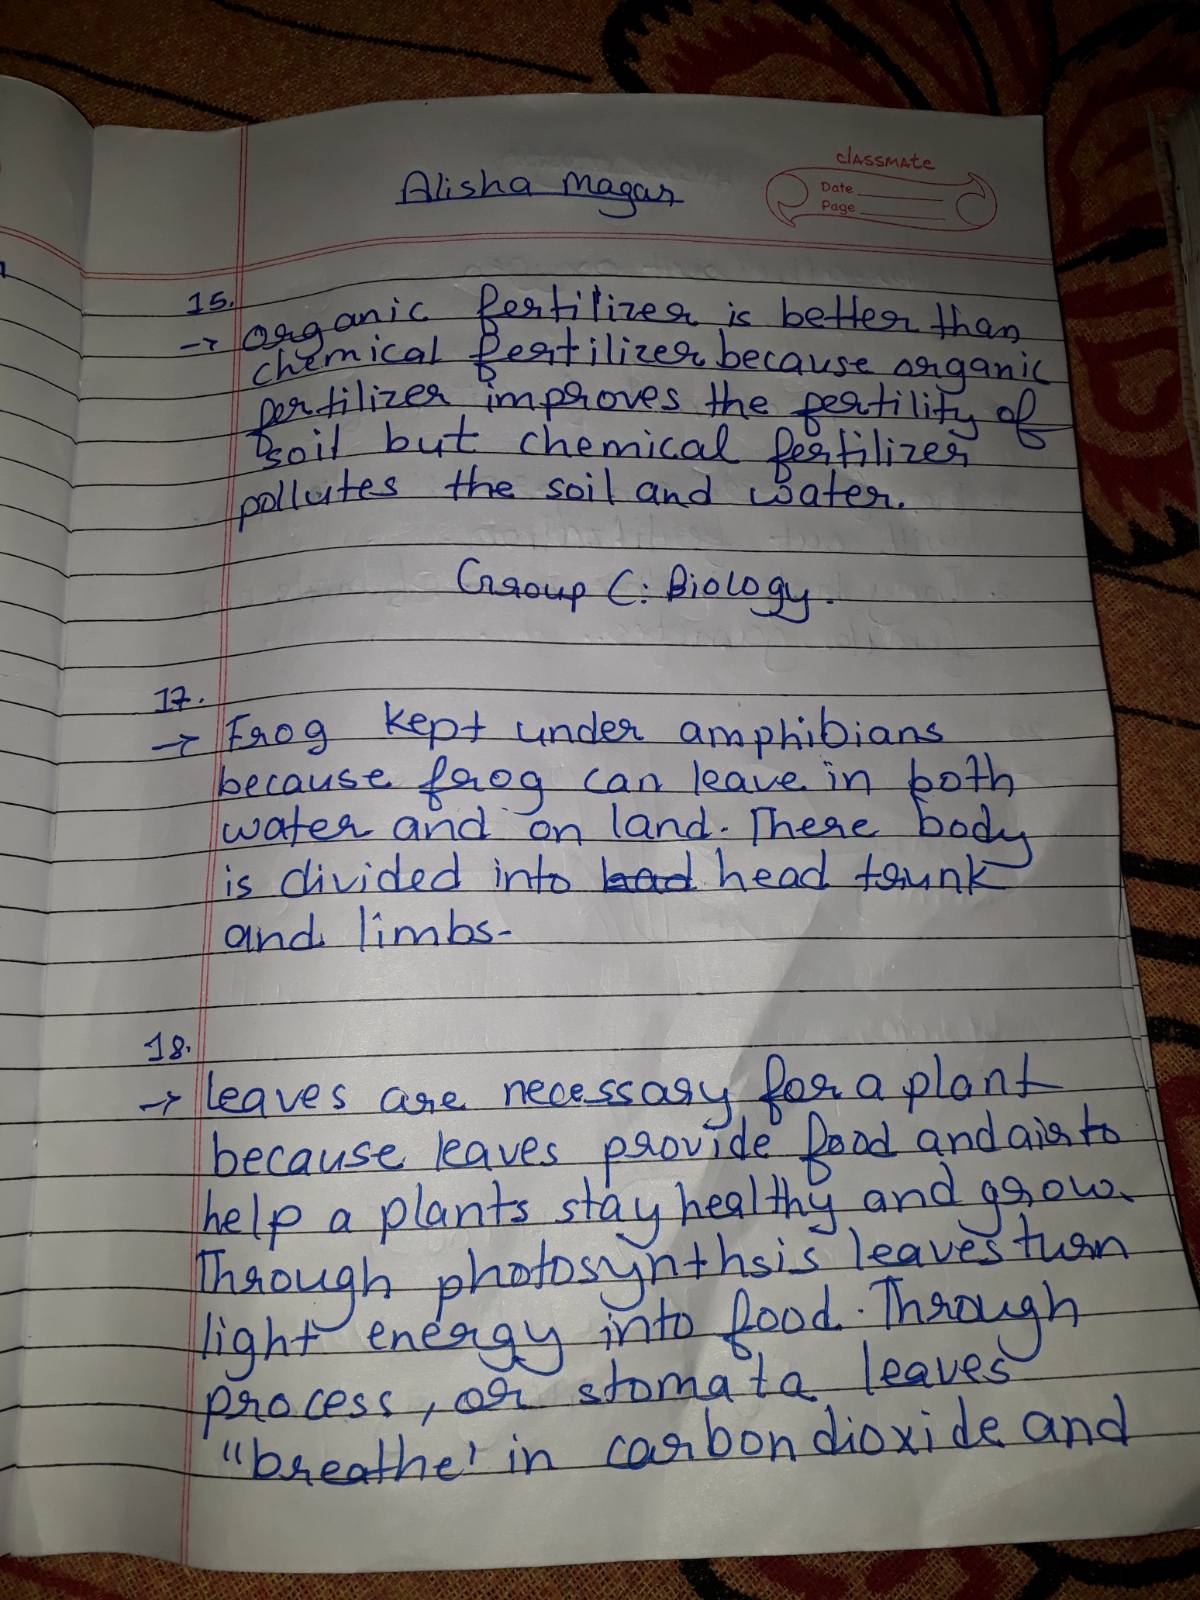 Alisha Magar
classmate
Date
Page
15.
→ Organic fertilizer is better than
chemical fertilizer because organic
fertilizer improves the fertility of
soil but chemical fertilizer
pollutes the soil and water.
Group C: Biology.
17.
→ Frog kept under amphibians
because frog can leave in both
water and on land. There body
is divided into bad head trunk
and limbs-
18.
→ leaves are necessary for a plant
because leaves provide food and air to
help a plants stay healthy and grow.
Through photosynthsis leaves turn
light energy into food. Through
process, or stomata leaves
"breathe' in carbon dioxide and